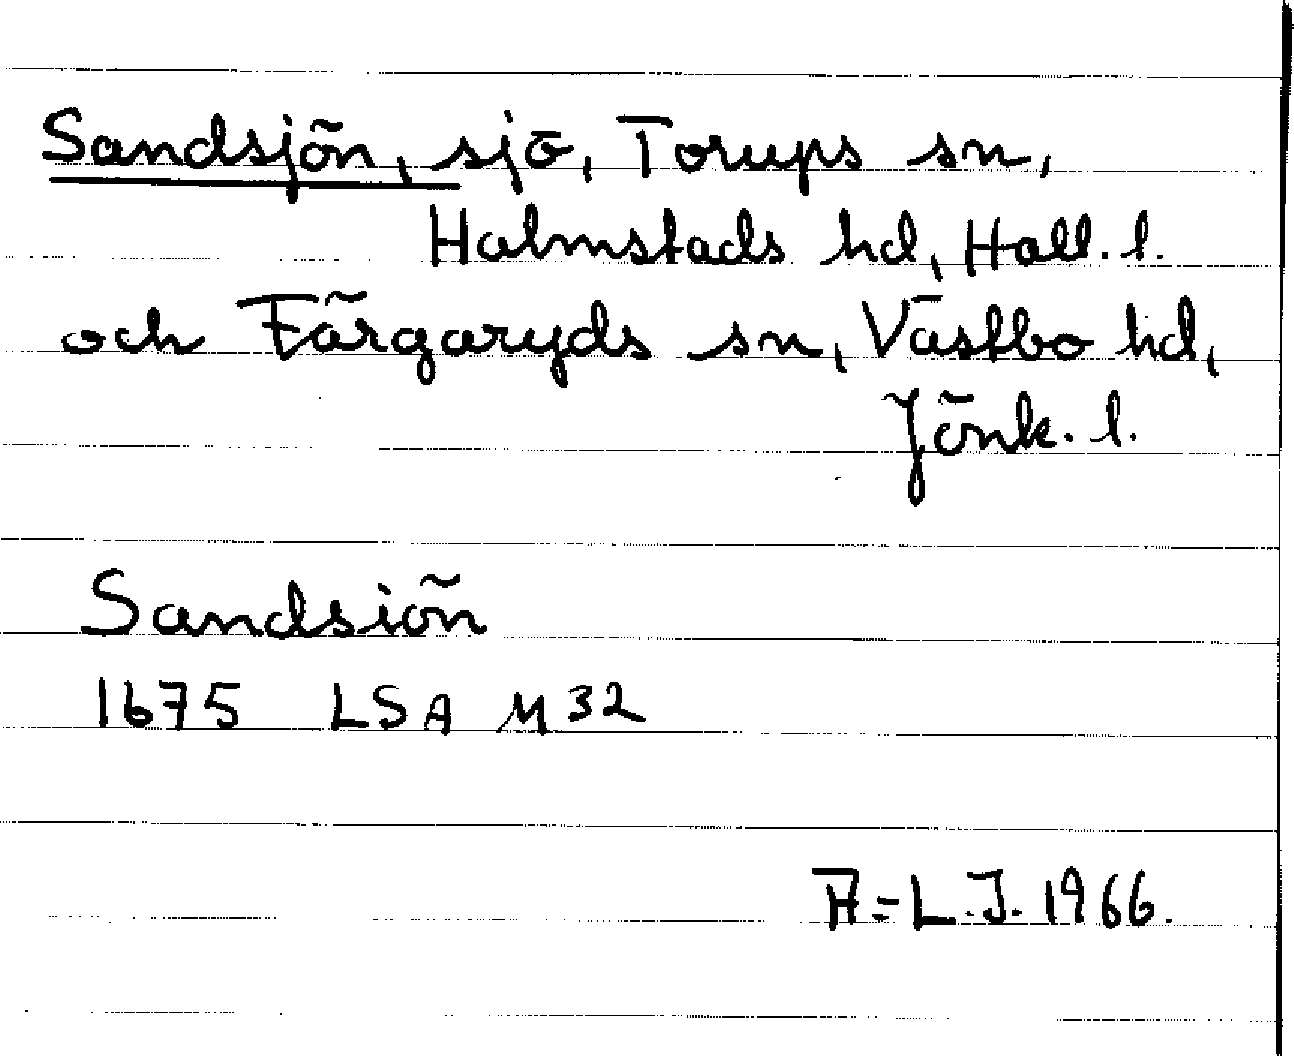 Sandsjön, sjö, Torups sn,
Halmstads hd, Hall. l.
och Färgaryds sn, Västbo hd,
Jönk. l.
Sandsiön
1675 LSA M 32
A-L.J. 1966.